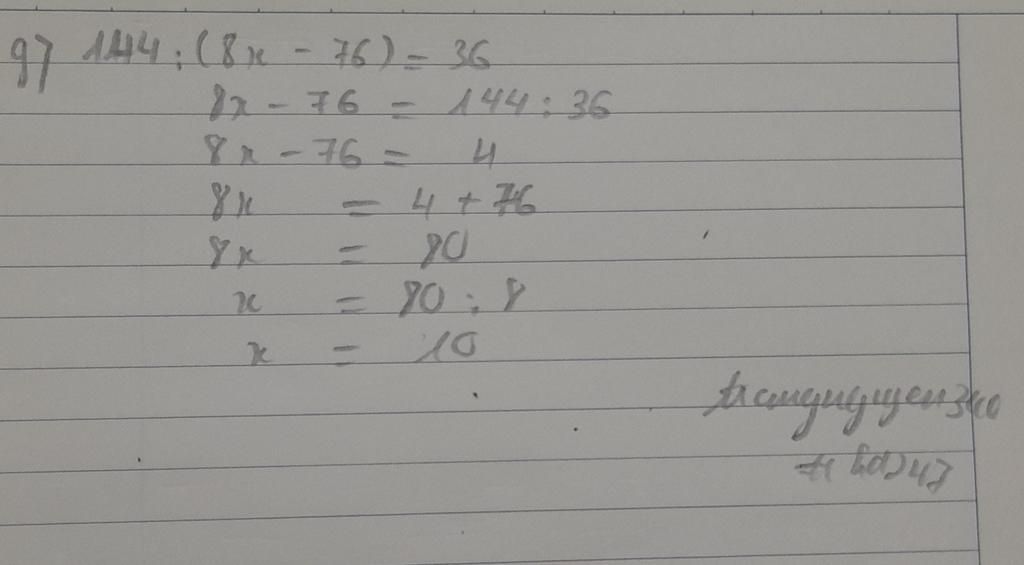 g) 144 : (8x - 76) = 36
8x - 76 = 144 : 36
8x - 76 = 4
8x = 4 + 76
8x = 80
x = 80 : 8
x = 10